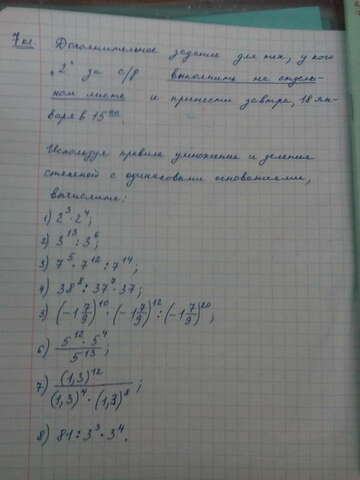 7 кл.
Дополнительное задание для тех, у кого
"2" за с/р выполнить на отдель-
ном листе и принести завтра, 18 ян-
варя в 15⁰⁰.
Используя правила умножения и деления
степеней с одинаковыми основаниями,
вычислите:
1) 2³·2⁴;
2) 3¹³:3⁶;
3) 7⁵·7¹⁰:7¹⁴;
4) 38⁸:37⁷·37;
5) (-1 7/9)¹⁰·(-1 7/9)¹²:(-1 7/9)²⁰;
6) 5¹²·5⁴/5¹³;
7) (1,3)¹²/(1,3)⁴·(1,3)⁸;
8) 81:3³·3⁴.